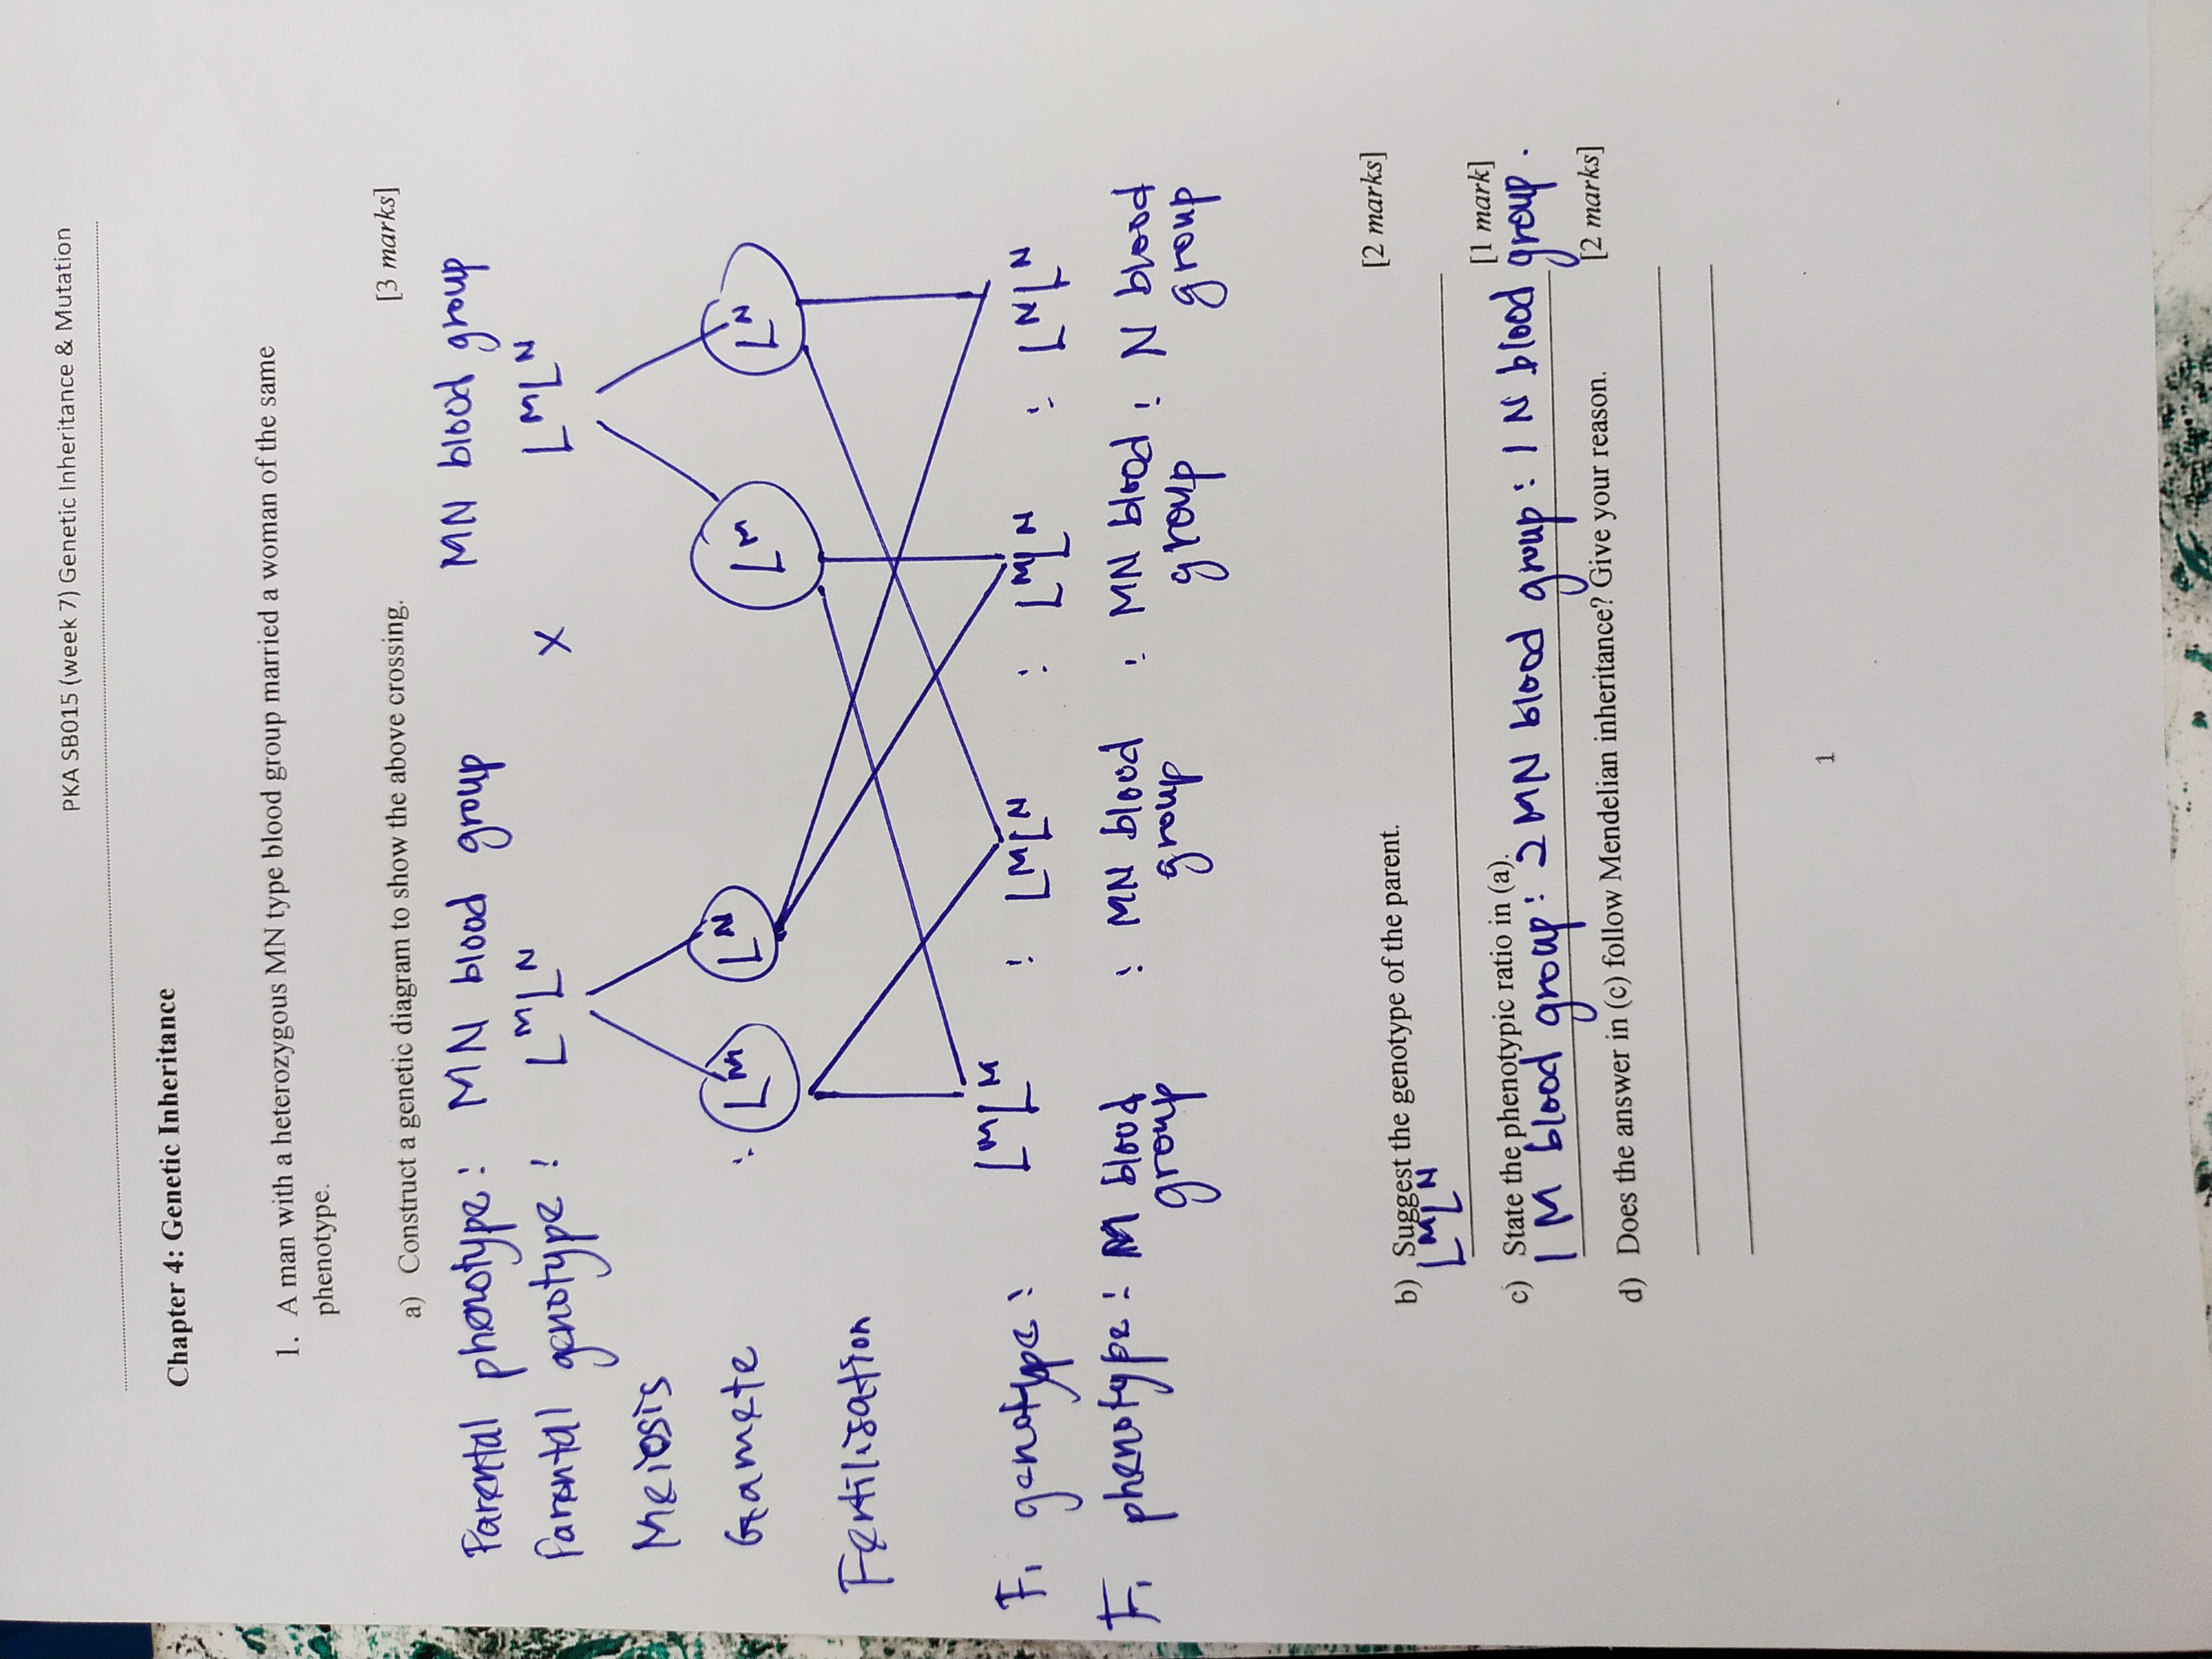 PKA SB015 (week 7) Genetic Inheritance & Mutation
Chapter 4: Genetic Inheritance
1. A man with a heterozygous MN type blood group married a woman of the same
phenotype.
a) Construct a genetic diagram to show the above crossing. [3 marks]
Parental phenotype: MN blood group MN blood group
Parental genotype: LᴹLᴺ × LᴹLᴺ
Meiosis
Gamete : Lᴹ Lᴺ Lᴹ Lᴺ
Fertilisation
F₁ genotype: LᴹLᴹ : LᴹLᴺ : LᴹLᴺ : LᴺLᴺ
F₁ phenotype: M blood : MN blood : MN blood : N blood
group group group group
b) Suggest the genotype of the parent. [2 marks]
LᴹLᴺ
c) State the phenotypic ratio in (a). [1 mark]
1 M blood group: 2 MN blood group: 1 N blood group.
d) Does the answer in (c) follow Mendelian inheritance? Give your reason. [2 marks]
1